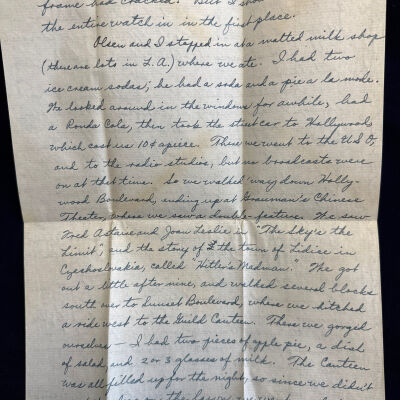 frame had cracked. But I
the entire watch in in the first place.
Olsen and I stopped in at a malted milk shop
(there are lots in L.A.) where we ate. I had two
ice cream sodas; he had a soda and a pie a la mode.
We looked around in the windows for awhile, had
a Ronda Cola, then took the streetcar to Hollywood,
which cost us 10¢ apiece. There we went to the U.S.O.,
and to the radio studios, but no broadcasts were
on at that time. So we walked 'way down Holly-
wood Boulevard, ending up at Grauman's Chinese
Theater, where we saw a double-feature. We saw
Fred Astaire and Joan Leslie in "The Sky's the
Limit" and the story of the town of Lidice in
Czechoslovakia, called "Hitler's Madman." We got
out a little after nine, and walked several blocks
south over to Sunset Boulevard, where we hitched
a ride west to the Guild Canteen. There we gorged
ourselves — I had two pieces of apple pie, a dish
of salad, and 2 or 3 glasses of milk. The Canteen
was all filled up for the night, so since we didn't